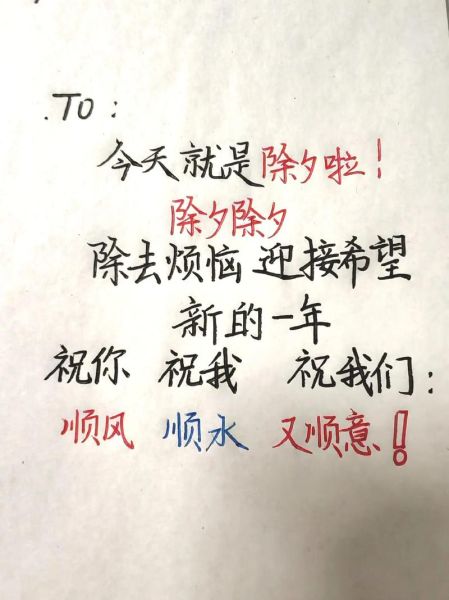 .TO：
今天就是除夕啦！
除夕除夕
除去烦恼 迎接希望
新的一年
祝你 祝我 祝我们：
顺风 顺水 又顺意！